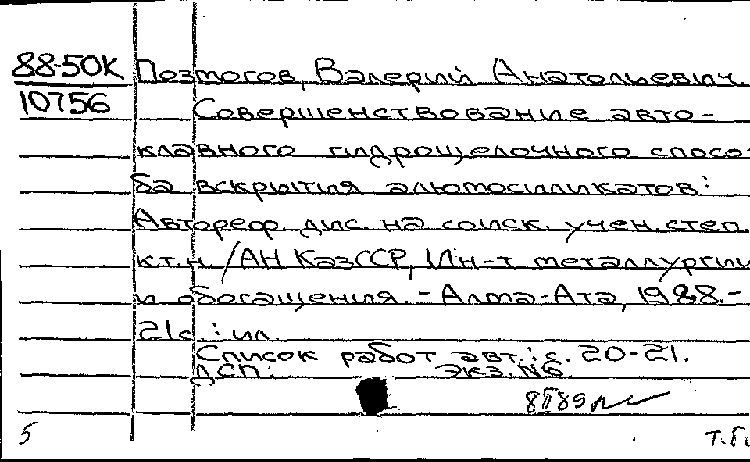 88-50К Позмогов, Валерий Анатольевич.
10756 Совершенствование авто-
клавного гидрощелочного спосо-
ба вскрытия алюмосиликатов:
Автореф. дис. на соиск. учен. степ.
к.т.н. /АН КазССР, Ин-т металлургии
и обогащения. - Алма-Ата, 1988. -
21с.: ил.
Список работ авт.: с. 20-21.
ДСП. Экз. №6
5